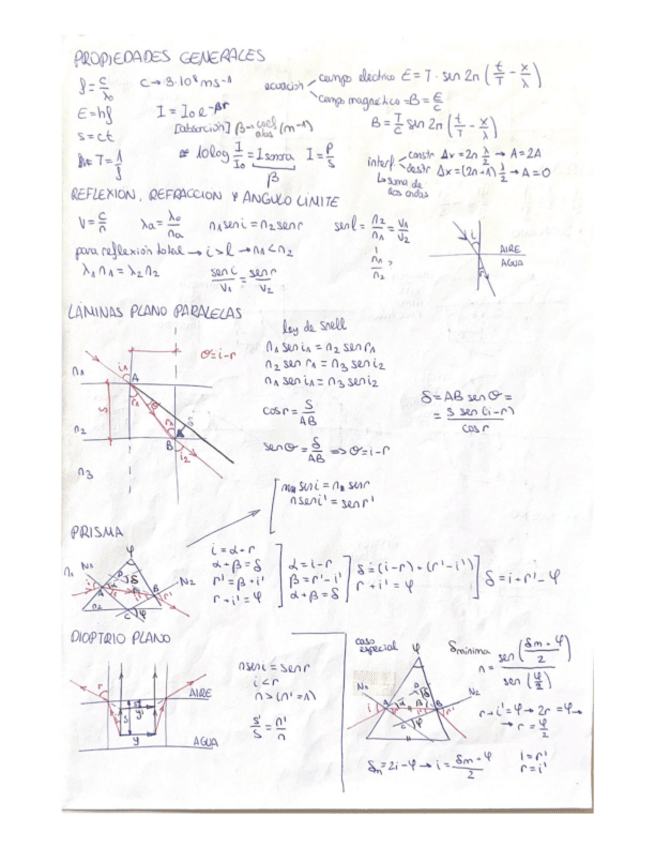 PROPIEDADES GENERALES
f = c/λ₀   c → 3·10⁸ ms-1
ecuación   campo eléctrico E = T · sen 2π (t/T - x/λ)
campo magnético = B = E/c
E = hf   I = I₀ e^-βr
B = T/c sen 2π (t/T - x/λ)
s = ct   [absorción] β → coef abs (m⁻¹)
T = 1/f   10 log I/I₀ = I sonora   I = P/S
β
interf   constr Δx = 2n λ/2 → A = 2A
destr Δx = (2n+1) λ/2 → A = 0
↳ suma de
las ondas
REFLEXION, REFRACCION Y ANGULO LIMITE
V = c/n   λa = λ₀/na   n₁ sen i = n₂ sen r   sen l = n₂/n₁ = V₁/V₂
para reflexión total → i > l → n₁ < n₂
λ₁ n₁ = λ₂ n₂   sen i/V₁ = sen r/V₂
i
AIRE
AGUA
r
LÁMINAS PLANO PARALELAS
ley de snell
n₁ sen i₁ = n₂ sen r₁
n₂ sen r₁ = n₃ sen i₂
n₁ sen i₁ = n₃ sen i₂
cos r = S/AB
sen θ = δ/AB ⇒ θ = i-r
δ = AB sen θ =
= S sen (i-r)/cos r
θ = i-r
n₁
i₁
A
S
r₁
θ
r₁
δ
n₂
B
i₂
n₃
sen i = sen r
n sen i' = sen r'
PRISMA
i = α+r
α+β = δ
r' = β+i'
r+i' = φ
α = i-r
β = r'-i'
α+β = δ
δ = (i-r) + (r'-i')
r+i' = φ
δ = i+r'-φ
φ
N₁
N₂
n₁
n₂
A
B
C
D
δ
φ
DIOPTRIO PLANO
n sen i = sen r
i < r
n > (n' = 1)
s'/s = n'/n
r
AIRE
AGUA
y'
s
y
caso
especial
δ mínima
n = sen (δm+φ/2) / sen (φ/2)
r+i' = φ → 2r = φ →
→ r = φ/2
δm = 2i - φ → i = δm+φ/2
i = r'
r = i'
φ
N₁
N₂
D
δ
A
α
β
B
C
φ
i
r'